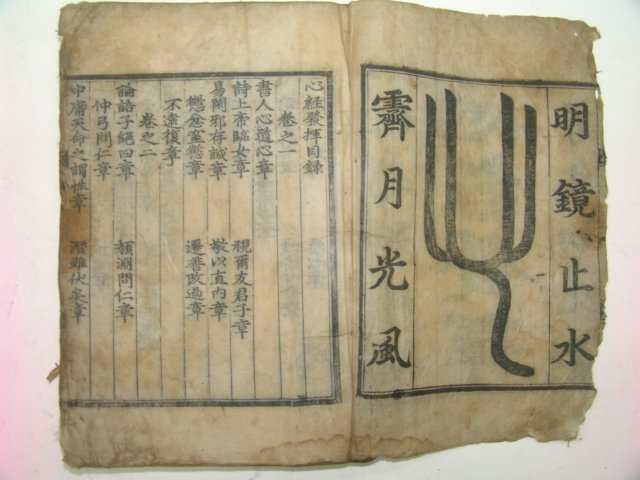 明鏡止水
霽月光風
心經發揮目録
卷之一
書人心道心章
詩上帝臨女章 視爾友君子章
易閑邪存誠章 敬以直內章
懲忿窒慾章 遷善改過章
不遠復章
卷之二
論語子絕四章 顏淵問仁章
仲弓問仁章
中庸天命之謂性章 潛雖伏矣章